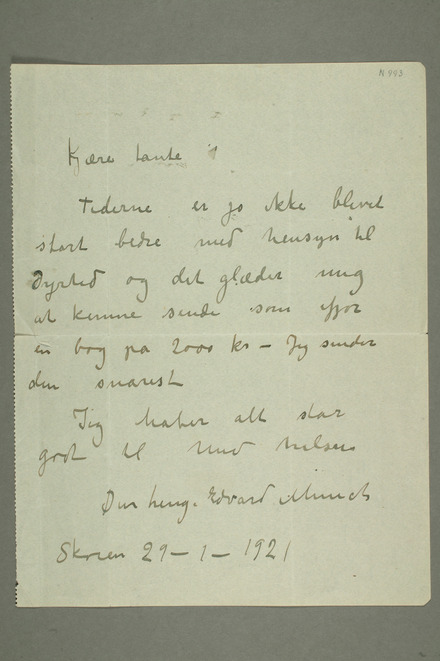 N 993
Kjære tante!
Tiderne er jo ikke blevet
stort bedre med hensyn til
Dyrtid og det glæder mig
at kunne sende som ifjor
en bog på 2000 kr – Jeg sender
den snarest
Jeg håber alt står
godt til Med hilsen
Din heng. Edvard Munch
Skøien 29 – 1 – 1921